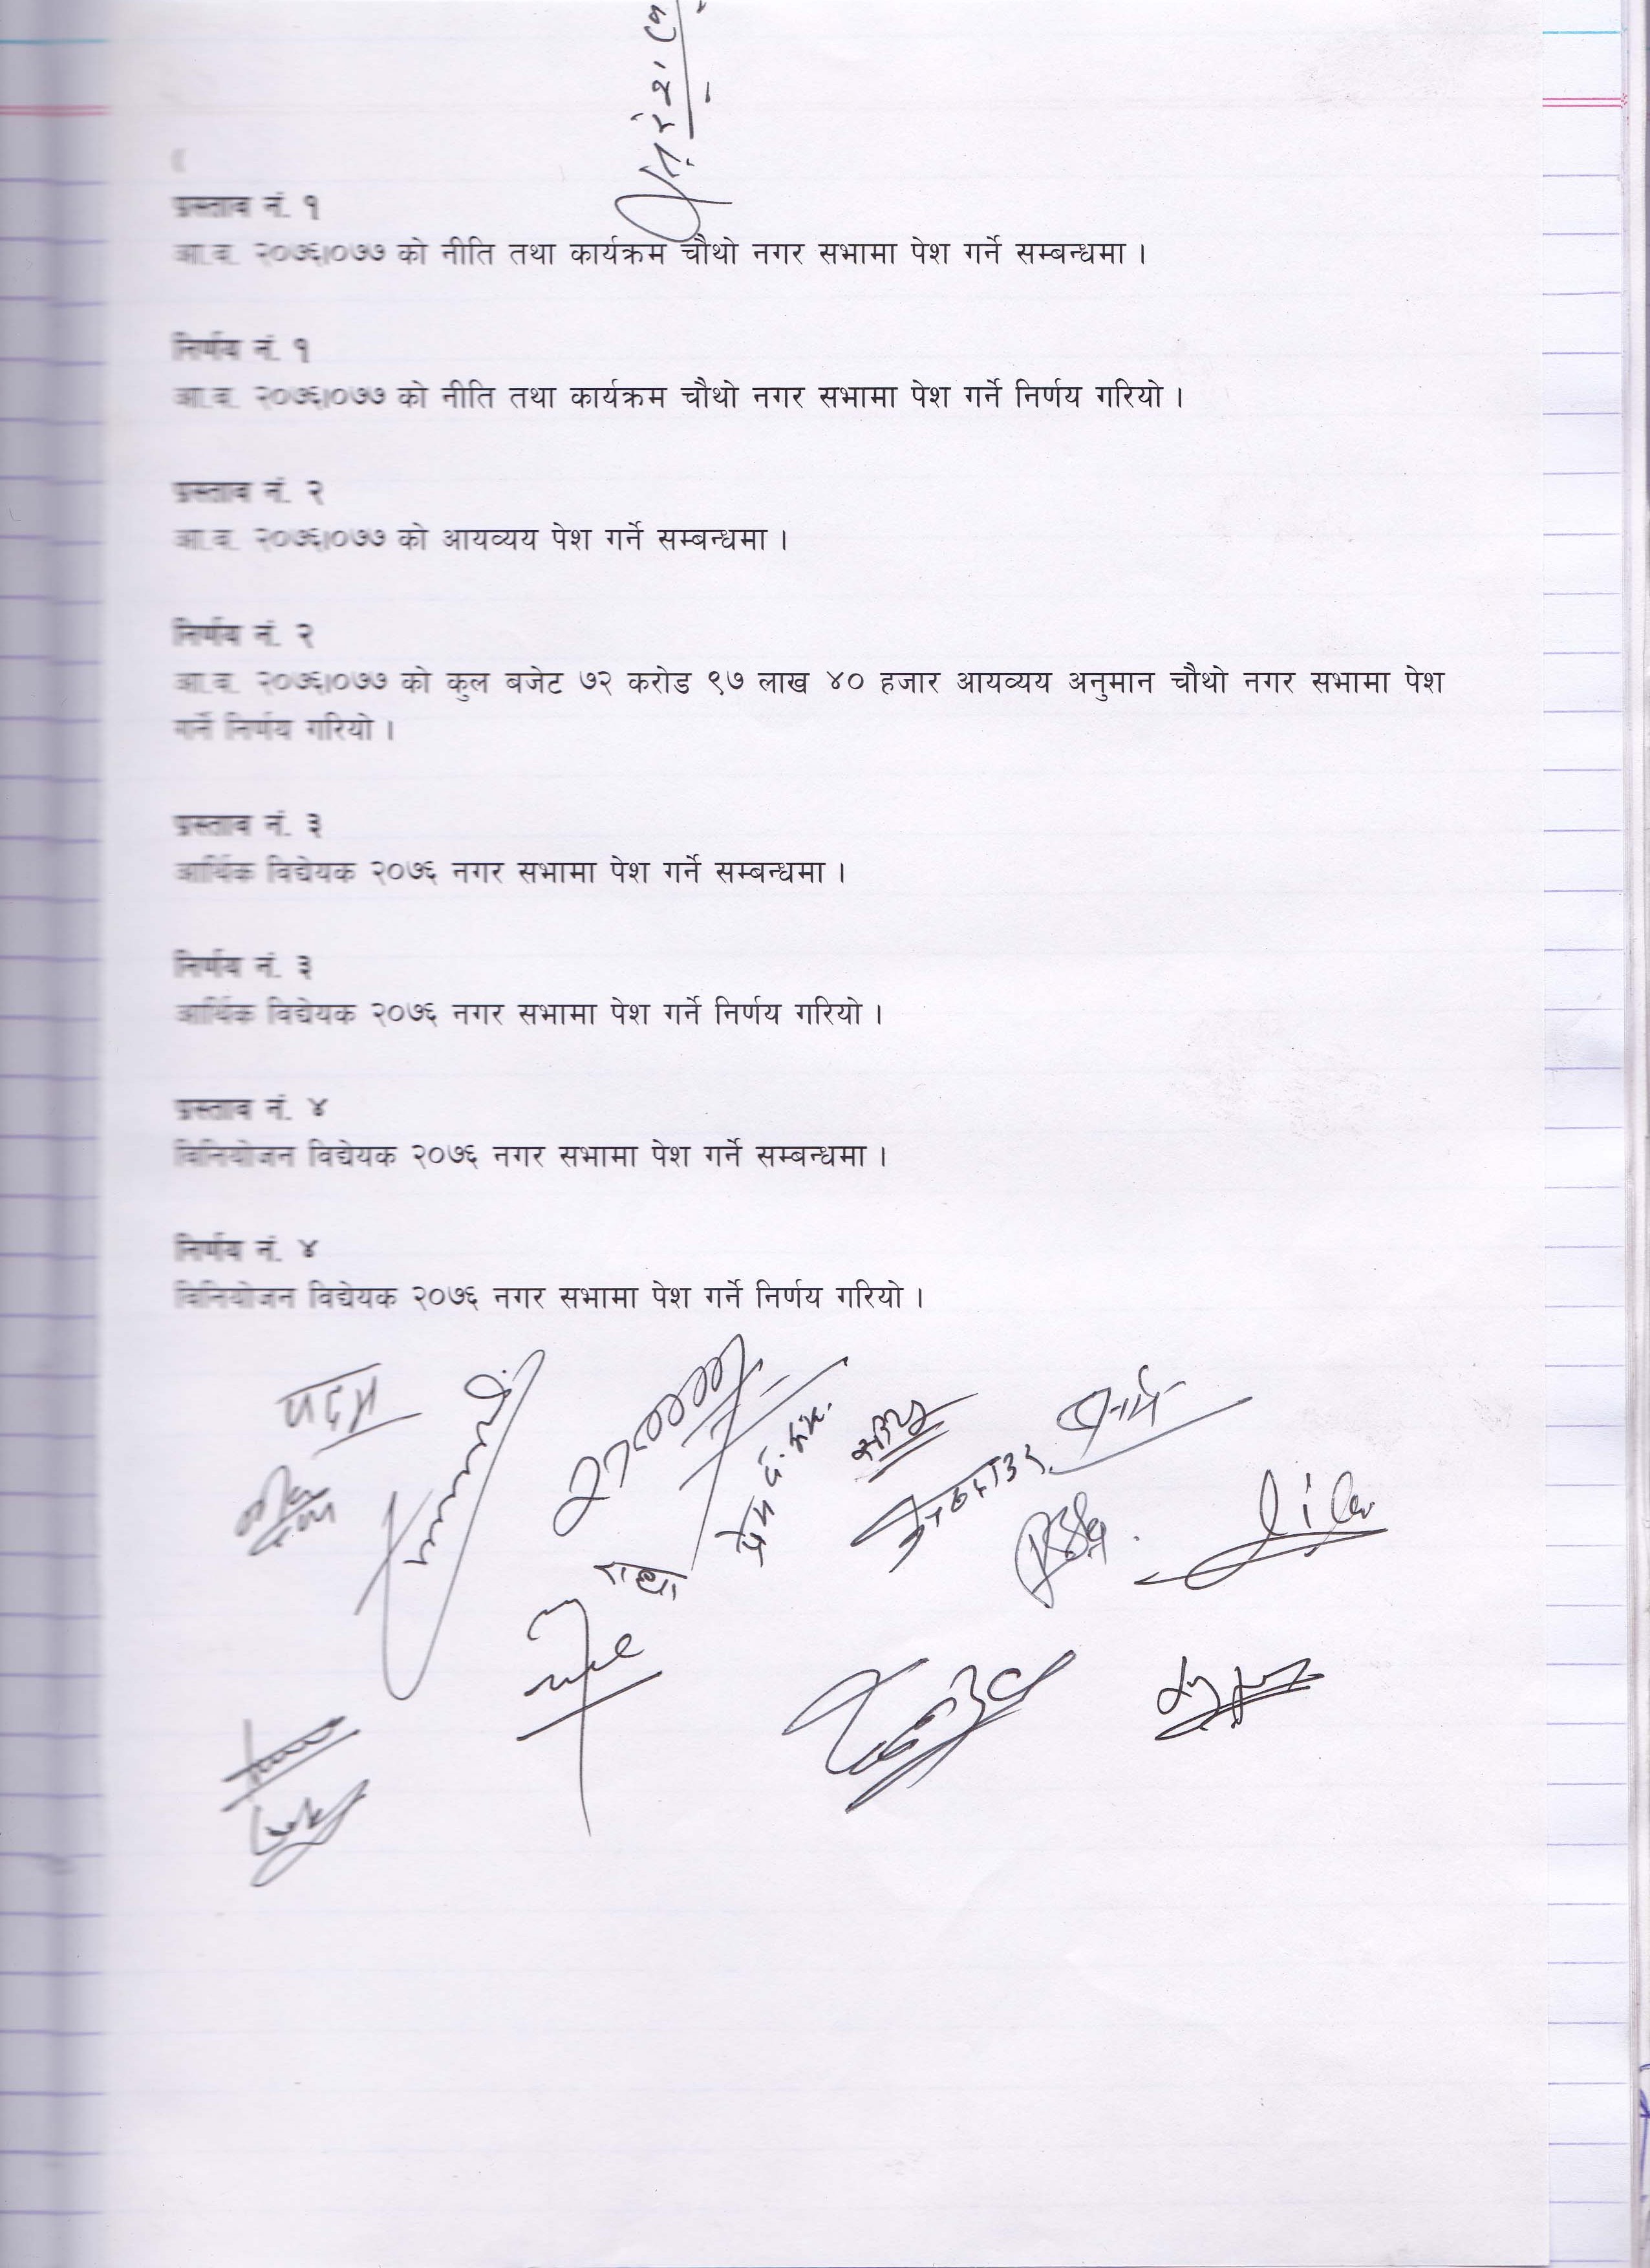 प्रस्ताव नं. १
आ.व. २०७६।०७७ को नीति तथा कार्यक्रम चौथो नगर सभामा पेश गर्ने सम्बन्धमा ।
निर्णय नं. १
आ.व. २०७६।०७७ को नीति तथा कार्यक्रम चौथो नगर सभामा पेश गर्ने निर्णय गरियो ।
प्रस्ताव नं. २
आ.व. २०७६।०७७ को आयव्यय पेश गर्ने सम्बन्धमा ।
निर्णय नं. २
आ.व. २०७६।०७७ को कुल बजेट ७२ करोड ९७ लाख ४० हजार आयव्यय अनुमान चौथो नगर सभामा पेश
गर्ने निर्णय गरियो ।
प्रस्ताव नं. ३
आर्थिक विद्येयक २०७६ नगर सभामा पेश गर्ने सम्बन्धमा ।
निर्णय नं. ३
आर्थिक विद्येयक २०७६ नगर सभामा पेश गर्ने निर्णय गरियो ।
प्रस्ताव नं. ४
विनियोजन विद्येयक २०७६ नगर सभामा पेश गर्ने सम्बन्धमा ।
निर्णय नं. ४
विनियोजन विद्येयक २०७६ नगर सभामा पेश गर्ने निर्णय गरियो ।
पदम